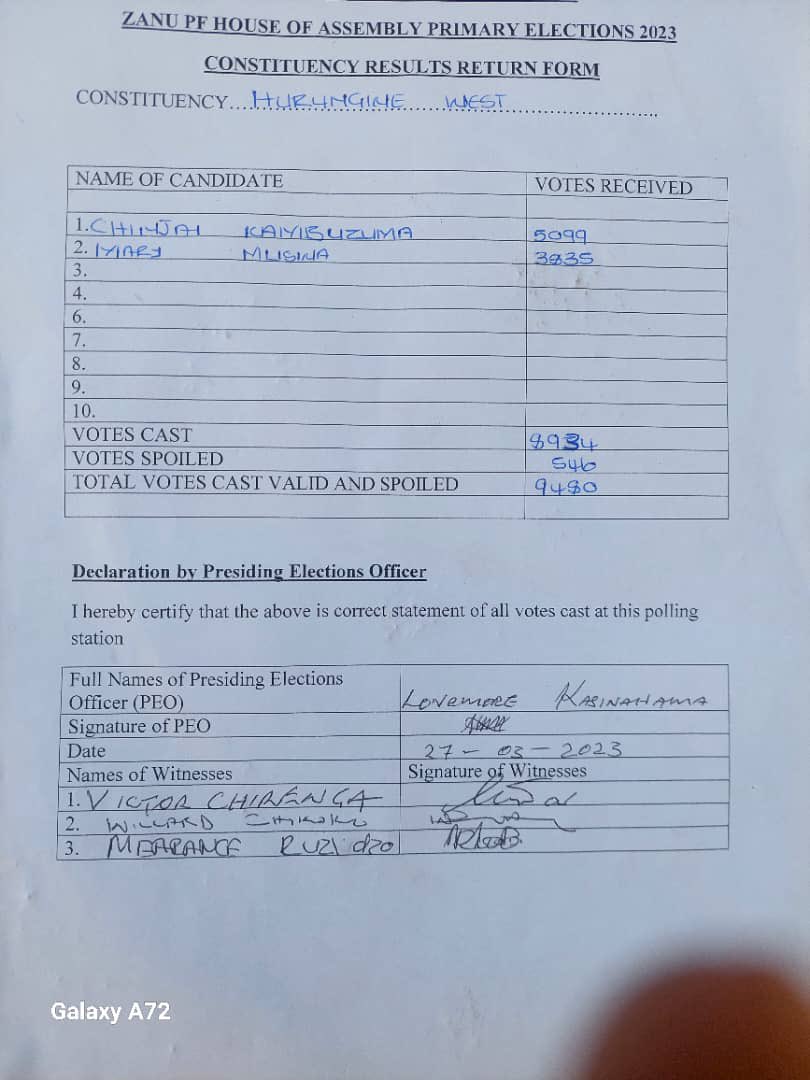 ZANU PF HOUSE OF ASSEMBLY PRIMARY ELECTIONS 2023
CONSTITUENCY RESULTS RETURN FORM
CONSTITUENCY....HURUNGWE......WEST..................................
NAME OF CANDIDATE VOTES RECEIVED
1. CHINJAI KAMBUZUMA 5099
2. MARY MLISWA 3835
3.
4.
6.
7.
8.
9.
10.
VOTES CAST 8934
VOTES SPOILED 546
TOTAL VOTES CAST VALID AND SPOILED 9480
Declaration by Presiding Elections Officer
I hereby certify that the above is correct statement of all votes cast at this polling
station
Full Names of Presiding Elections
Officer (PEO) LOVEMORE KASINAHAMA
Signature of PEO
Date 27-03-2023
Names of Witnesses Signature of Witnesses
1. VICTOR CHIRENGA
2. WILLARD
3. RUZIDZO
Galaxy A72